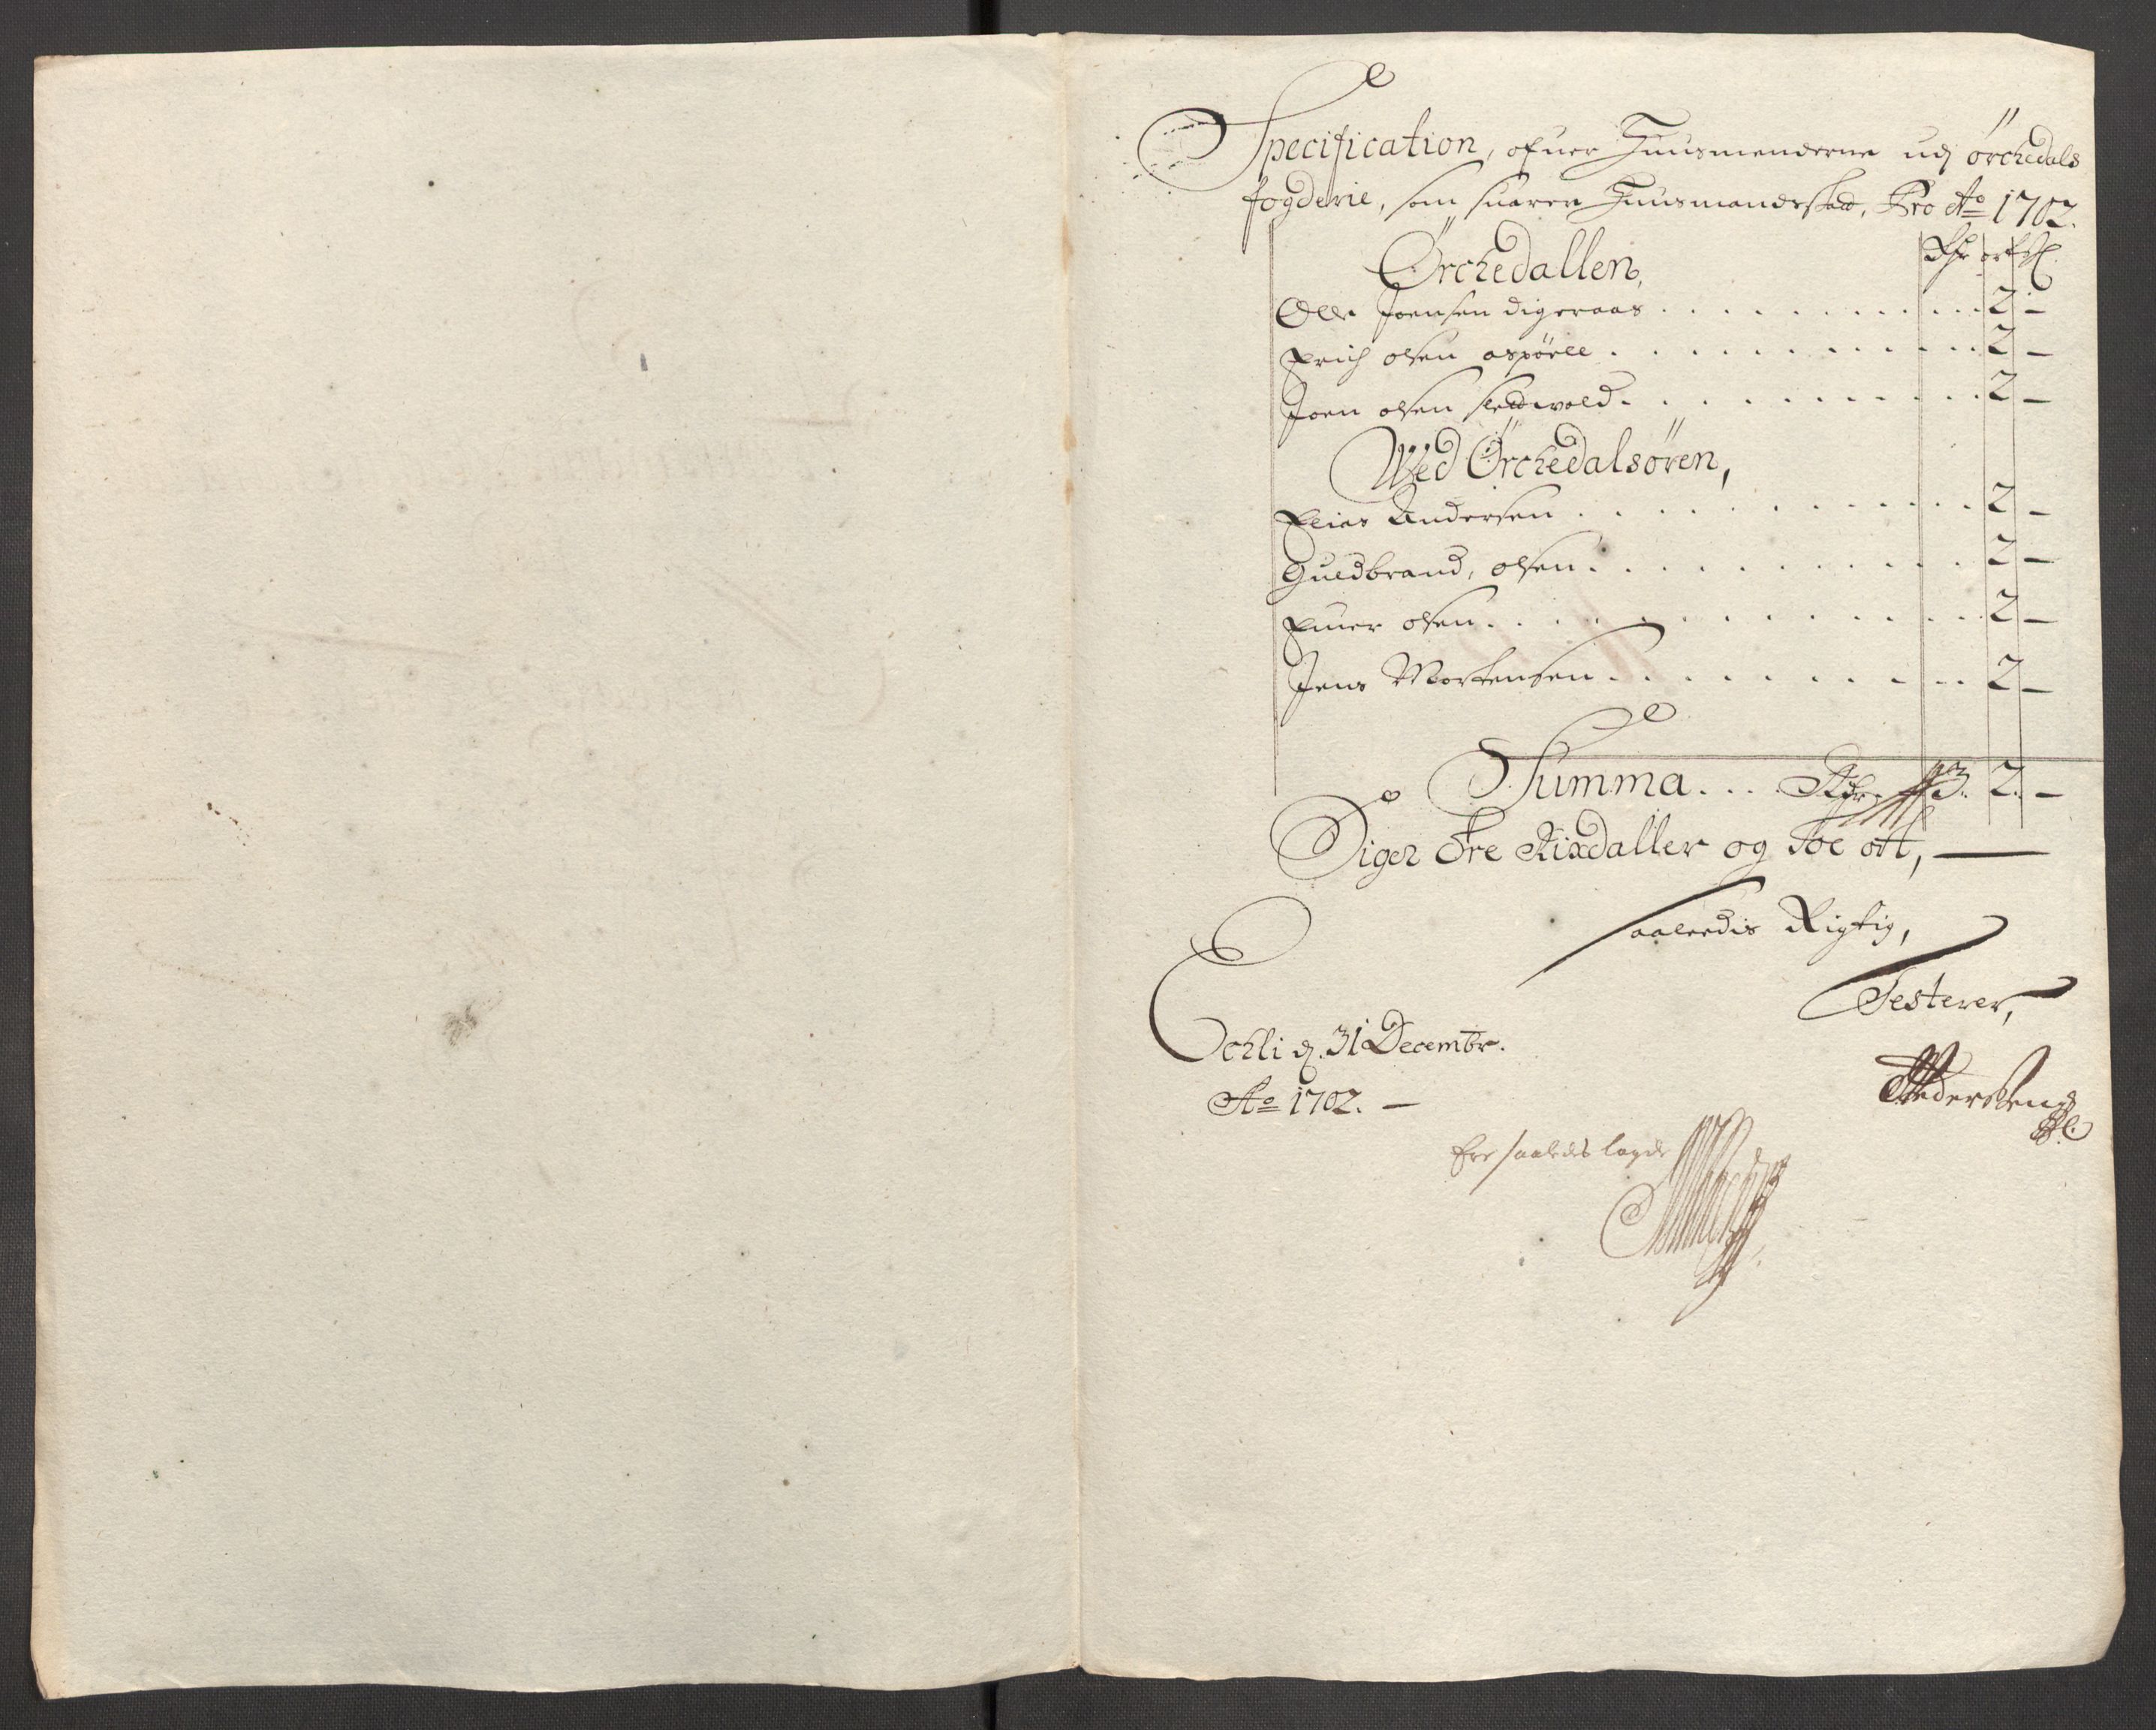 Specification, ofuer Huusmenderne udj örchedals
fogderie, som suarer Huusmandsskatt, Pro Ao 1702.
Örchedallen, Rdr ort ß
Olle Joensen digeraas . . . . . . . . . . . . 2 –
Erich olsen aspöell . . . . . . . . . . . . 2 –
Joen olsen slettvold . . . . . . . . . . . . 2 –
Wed Örchedalsören,
Elias Andersen . . . . . . . . . . . . 2 –
Guldbrand, olsen . . . . . . . . . . . . 2 –
Einer olsen . . . . . . . . . . . . 2 –
Jens Mortensen . . . . . . . . . . . . 2 –
Summa . . . Rdr 3. 2. –
Siger Tre Rixdaller og Toe ort, –
Saaleedis Rigtig,
Testerer,
Echli d. 31 Decembr.
Ao 1702. –
Ere saaledes lagde